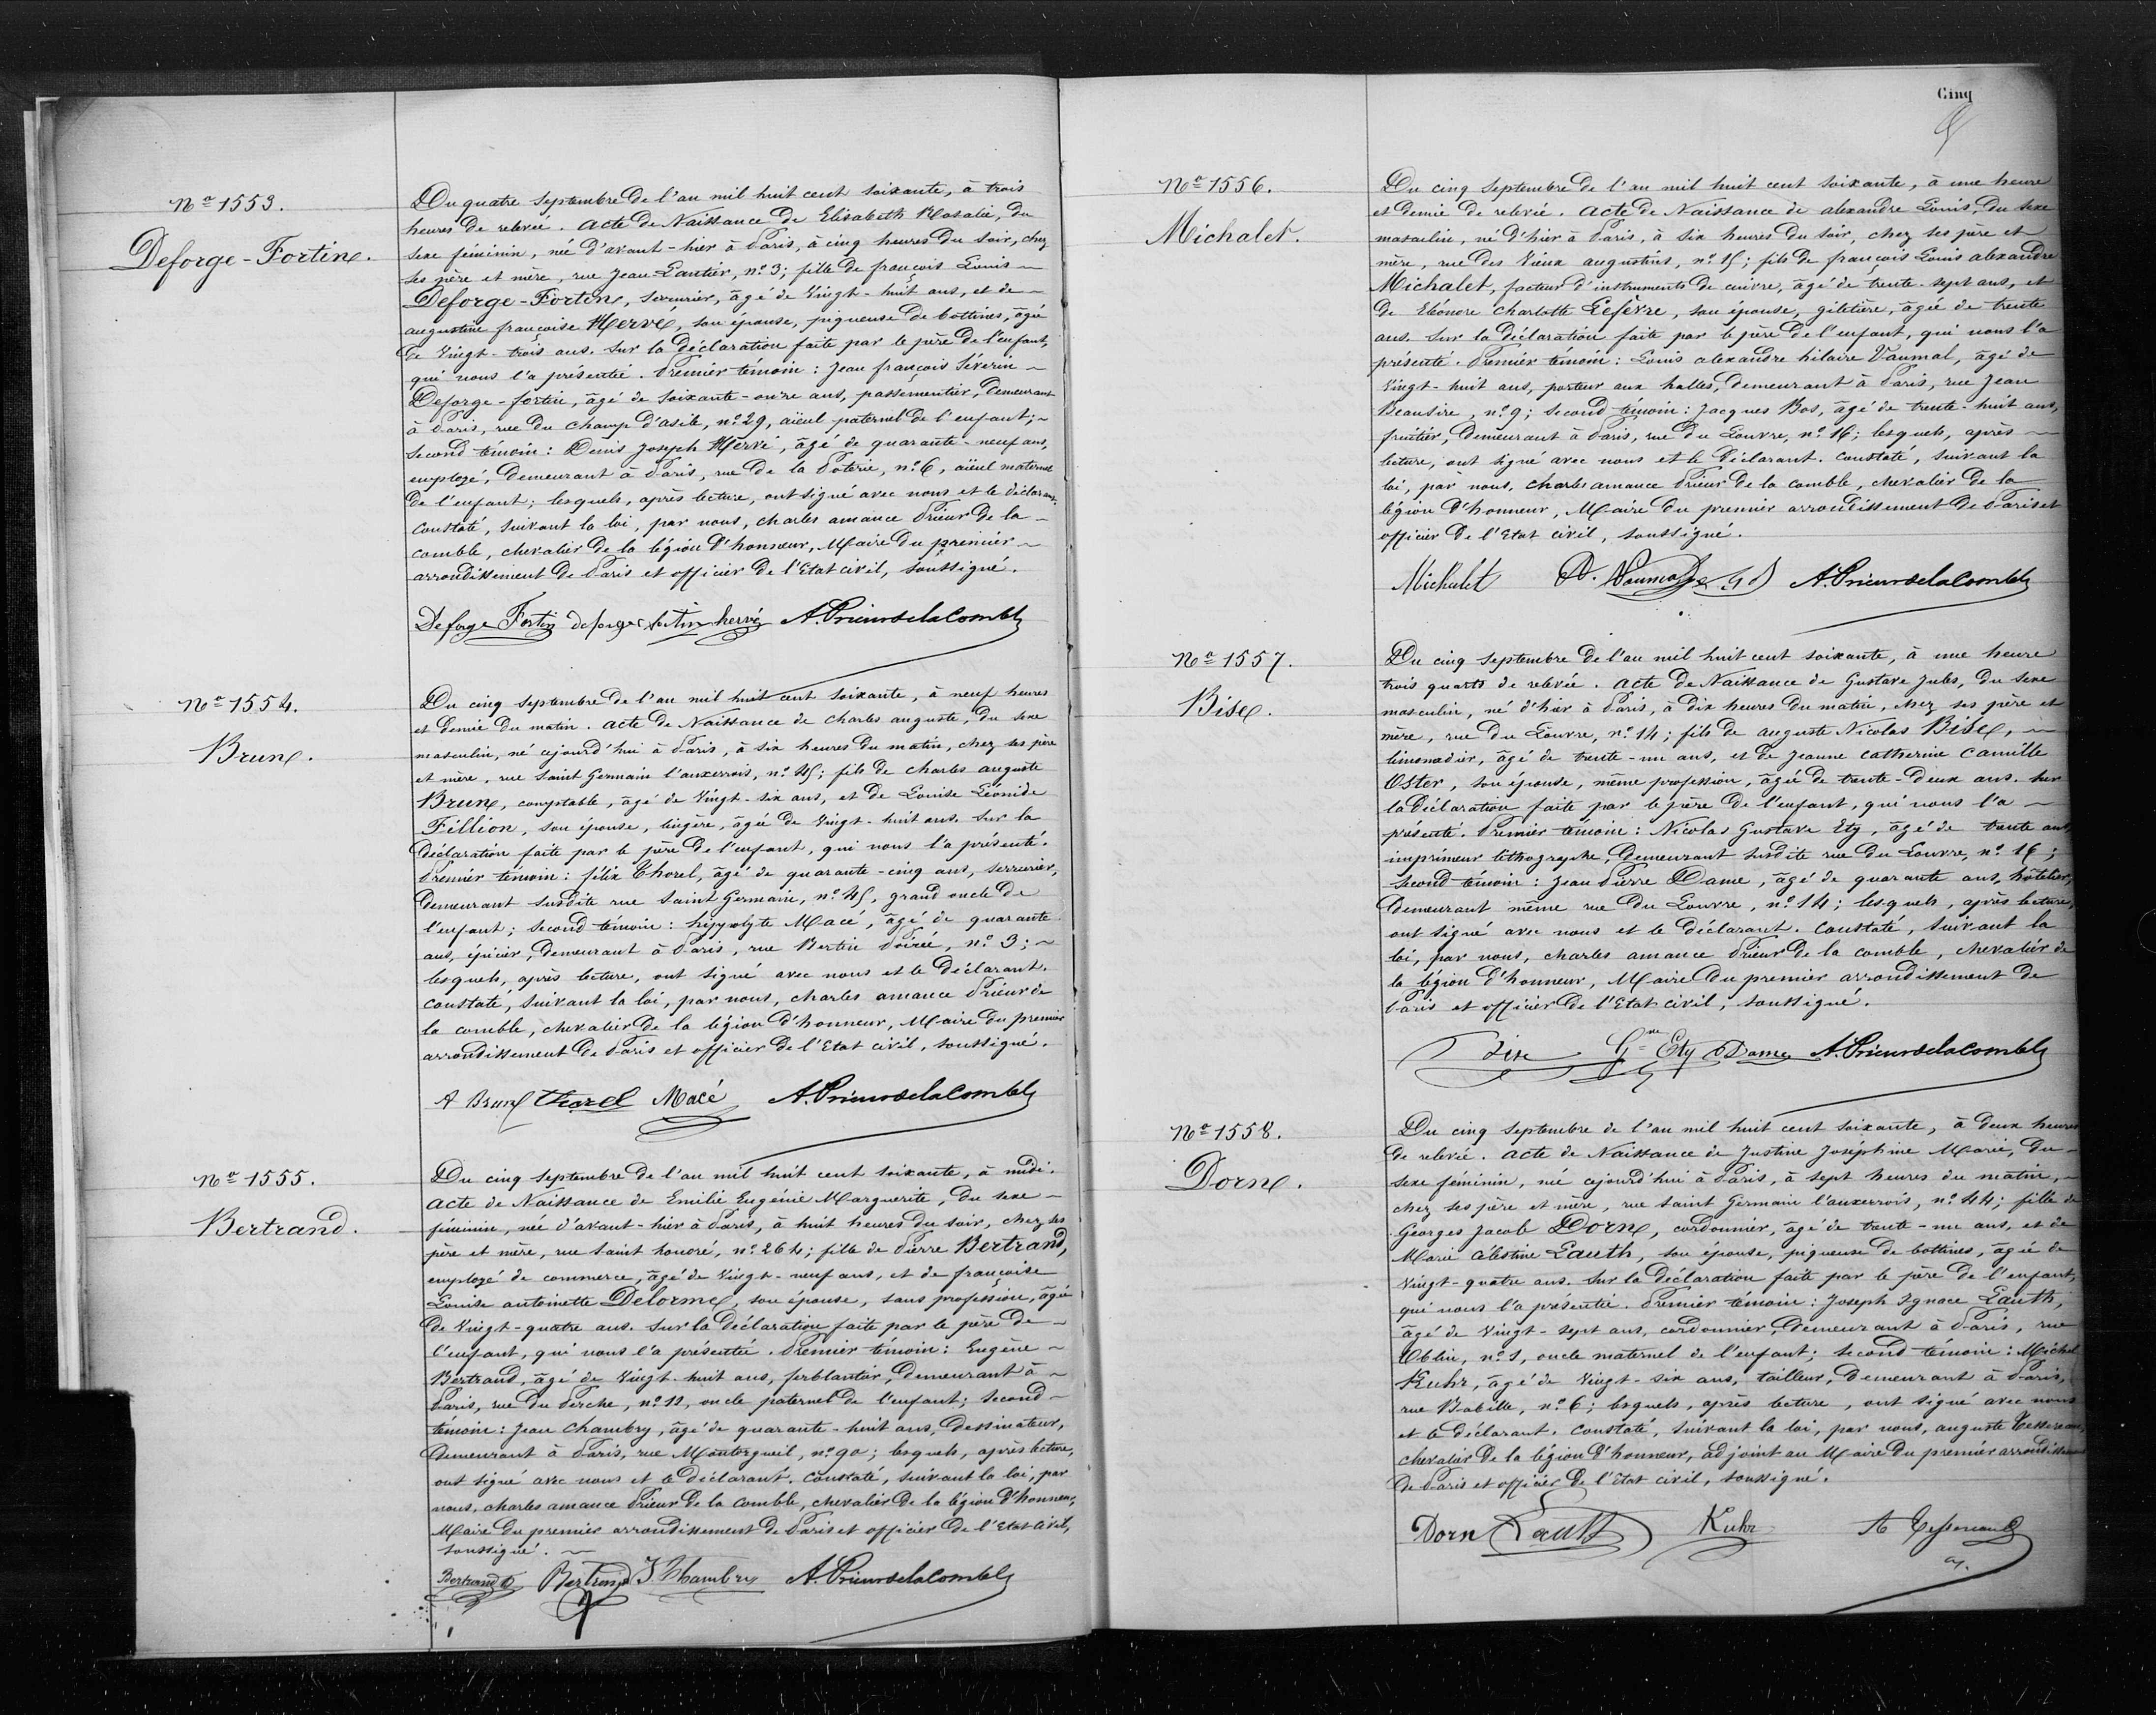 No 1553.
Deforge-Fortin.
Du quatre septembre de l'an mil huit cent soixante, à trois
heures de relevée. acte de Naissance de Elisabeth Rosalie, du
sexe féminin, née d'avant-hier à Paris, à cinq heures du soir, chez
ses père et mère, rue Jean Lantier, no 3; fille de françois Louis
Deforge-Fortin, serrurier, âgé de vingt-huit ans, et de
augustine françoise Hervé, son épouse, piqueuse de bottines, âgée
de vingt-trois ans. sur la déclaration faite par le père de l'enfant,
qui nous l'a présentée. Premier témoin: Jean françois Séverin
Deforge-fortin, âgé de soixante-onze ans, passementier, demeurant
à Paris, rue du champ d'asile, no 29, aïeul paternel de l'enfant;
second témoin: Denis Joseph Hervé, âgé de quarante-neuf ans,
employé, demeurant à Paris, rue de la Poterie, no 6, aïeul maternel
de l'enfant; lesquels, après lecture, ont signé avec nous et le déclarant.
constaté, suivant la loi, par nous, charles amance Prieur de la
comble, chevalier de la légion d'honneur, Maire du premier
arrondissement de Paris et officier de l'Etat civil, soussigné.
Deforge Fortin deforge fortin hervé A. Prieur de la Comble
No 1554.
Brun.
Du cinq septembre de l'an mil huit cent soixante, à neuf heures
et demie du matin. acte de Naissance de charles auguste, du sexe
masculin, né cejourd'hui à Paris, à six heures du matin, chez ses père
et mère, rue saint Germain l'auxerrois, no 45; fils de charles auguste
Brun, comptable, âgé de vingt-six ans, et de Louise Léonide
Fillion, son épouse, lingère, âgée de vingt-huit ans. sur la
déclaration faite par le père de l'enfant, qui nous l'a présenté.
Premier témoin: félix Thorel, âgé de quarante-cinq ans, serrurier,
demeurant susdite rue saint Germain, no 45, grand oncle de
l'enfant; second témoin: hippolyte Macé, âgé de quarante
ans, épicier, demeurant à Paris, rue Bertin Poirée, no 3;
lesquels, après lecture, ont signé avec nous et le déclarant.
constaté, suivant la loi, par nous, charles amance Prieur de
la comble, chevalier de la légion d'honneur, Maire du premier
arrondissement de Paris et officier de l'Etat civil, soussigné.
A Brun Thorel Macé A. Prieur de la Comble
No 1555.
Bertrand.
Du cinq septembre de l'an mil huit cent soixante, à midi.
acte de Naissance de Emilie Eugénie Marguerite, du sexe
féminin, née d'avant-hier à Paris, à huit heures du soir, chez ses
père et mère, rue saint honoré, no 264; fille de Pierre Bertrand,
employé de commerce, âgé de vingt-neuf ans, et de françoise
Louise antoinette Delorme, son épouse, sans profession, âgée
de vingt-quatre ans. sur la déclaration faite par le père de
l'enfant, qui nous l'a présentée. Premier témoin: Eugène
Bertrand, âgé de vingt-huit ans, ferblantier, demeurant à
Paris, rue du Perche, no 12, oncle paternel de l'enfant; second
témoin: Jean chambry, âgé de quarante-huit ans, dessinateur,
demeurant à Paris, rue Montorgueil, no 90; lesquels, après lecture,
ont signé avec nous et le déclarant. constaté, suivant la loi, par
nous, charles amance Prieur de la comble, chevalier de la légion d'honneur,
Maire du premier arrondissement de Paris et officier de l'Etat civil,
soussigné.
Bertrand Bertrand J. Chambry A. Prieur de la Comble
Cinq
No 1556.
Michalet.
Du cinq septembre de l'an mil huit cent soixante, à une heure
et demie de relevée. acte de Naissance de alexandre Louis, du sexe
masculin, né d'hier à Paris, à six heures du soir, chez ses père et
mère, rue des vieux augustins, no 15; fils de françois Louis alexandre
Michalet, facteur d'instruments de cuivre, âgé de trente-sept ans, et
de Eléonore charlotte Lefèvre, son épouse, giletière, âgée de trente
ans. sur la déclaration faite par le père de l'enfant, qui nous l'a
présenté. Premier témoin: Louis alexandre hilaire Vaumal, âgé de
vingt-huit ans, porteur aux halles, demeurant à Paris, rue Jean
Beausire, no 9; second témoin: Jacques Bos, âgé de trente-huit ans,
fruitier, demeurant à Paris, rue du Louvre, no 16; lesquels, après
lecture, ont signé avec nous et le déclarant. constaté, suivant la
loi, par nous, charles amance Prieur de la comble, chevalier de la
légion d'honneur, Maire du premier arrondissement de Paris et
officier de l'Etat civil, soussigné.
Michalet A. Prieur de la Comble
No 1557.
Bise.
Du cinq septembre de l'an mil huit cent soixante, à une heure
trois quarts de relevée. acte de Naissance de Gustave Jules, du sexe
masculin, né d'hier à Paris, à dix heures du matin, chez ses père et
mère, rue du Louvre, no 14; fils de auguste Nicolas Bise,
limonadier, âgé de trente-un ans, et de Jeanne catherine Camille
Oster, son épouse, même profession, âgée de trente-deux ans. sur
la déclaration faite par le père de l'enfant, qui nous l'a
présenté. Premier témoin: Nicolas Gustave Ety, âgé de trente ans,
imprimeur lithographe, demeurant susdite rue du Louvre, no 16;
second témoin: Jean Pierre Dame, âgé de quarante ans, hôtelier,
demeurant même rue du Louvre, no 14; lesquels, après lecture,
ont signé avec nous et le déclarant. constaté, suivant la
loi, par nous, charles amance Prieur de la comble, chevalier de
la légion d'honneur, Maire du premier arrondissement de
Paris et officier de l'Etat civil, soussigné.
Bise Gve Ety Dame A. Prieur de la Comble
No 1558.
Dorn.
Du cinq septembre de l'an mil huit cent soixante, à deux heures
de relevée. acte de Naissance de Justine Joséphine Marie, du
sexe féminin, née cejourd'hui à Paris, à sept heures du matin,
chez ses père et mère, rue saint Germain l'auxerrois, no 44; fille de
Georges Jacob Dorn, cordonnier, âgé de trente-un ans, et de
Marie Célestine Lauth, son épouse, piqueuse de bottines, âgée de
vingt-quatre ans. sur la déclaration faite par le père de l'enfant,
qui nous l'a présentée. Premier témoin: Joseph Ignace Lauth,
âgé de vingt-sept ans, cordonnier, demeurant à Paris, rue
Oblin, no 1, oncle maternel de l'enfant; second témoin: Michel
Kuhr, âgé de vingt-six ans, tailleur, demeurant à Paris,
rue Babille, no 6; lesquels, après lecture, ont signé avec nous
et le déclarant. constaté, suivant la loi, par nous, auguste Tessereau,
chevalier de la légion d'honneur, adjoint au Maire du premier arrondissement
de Paris et officier de l'Etat civil, soussigné.
Dorn Lauth Kuhr A Tessereau